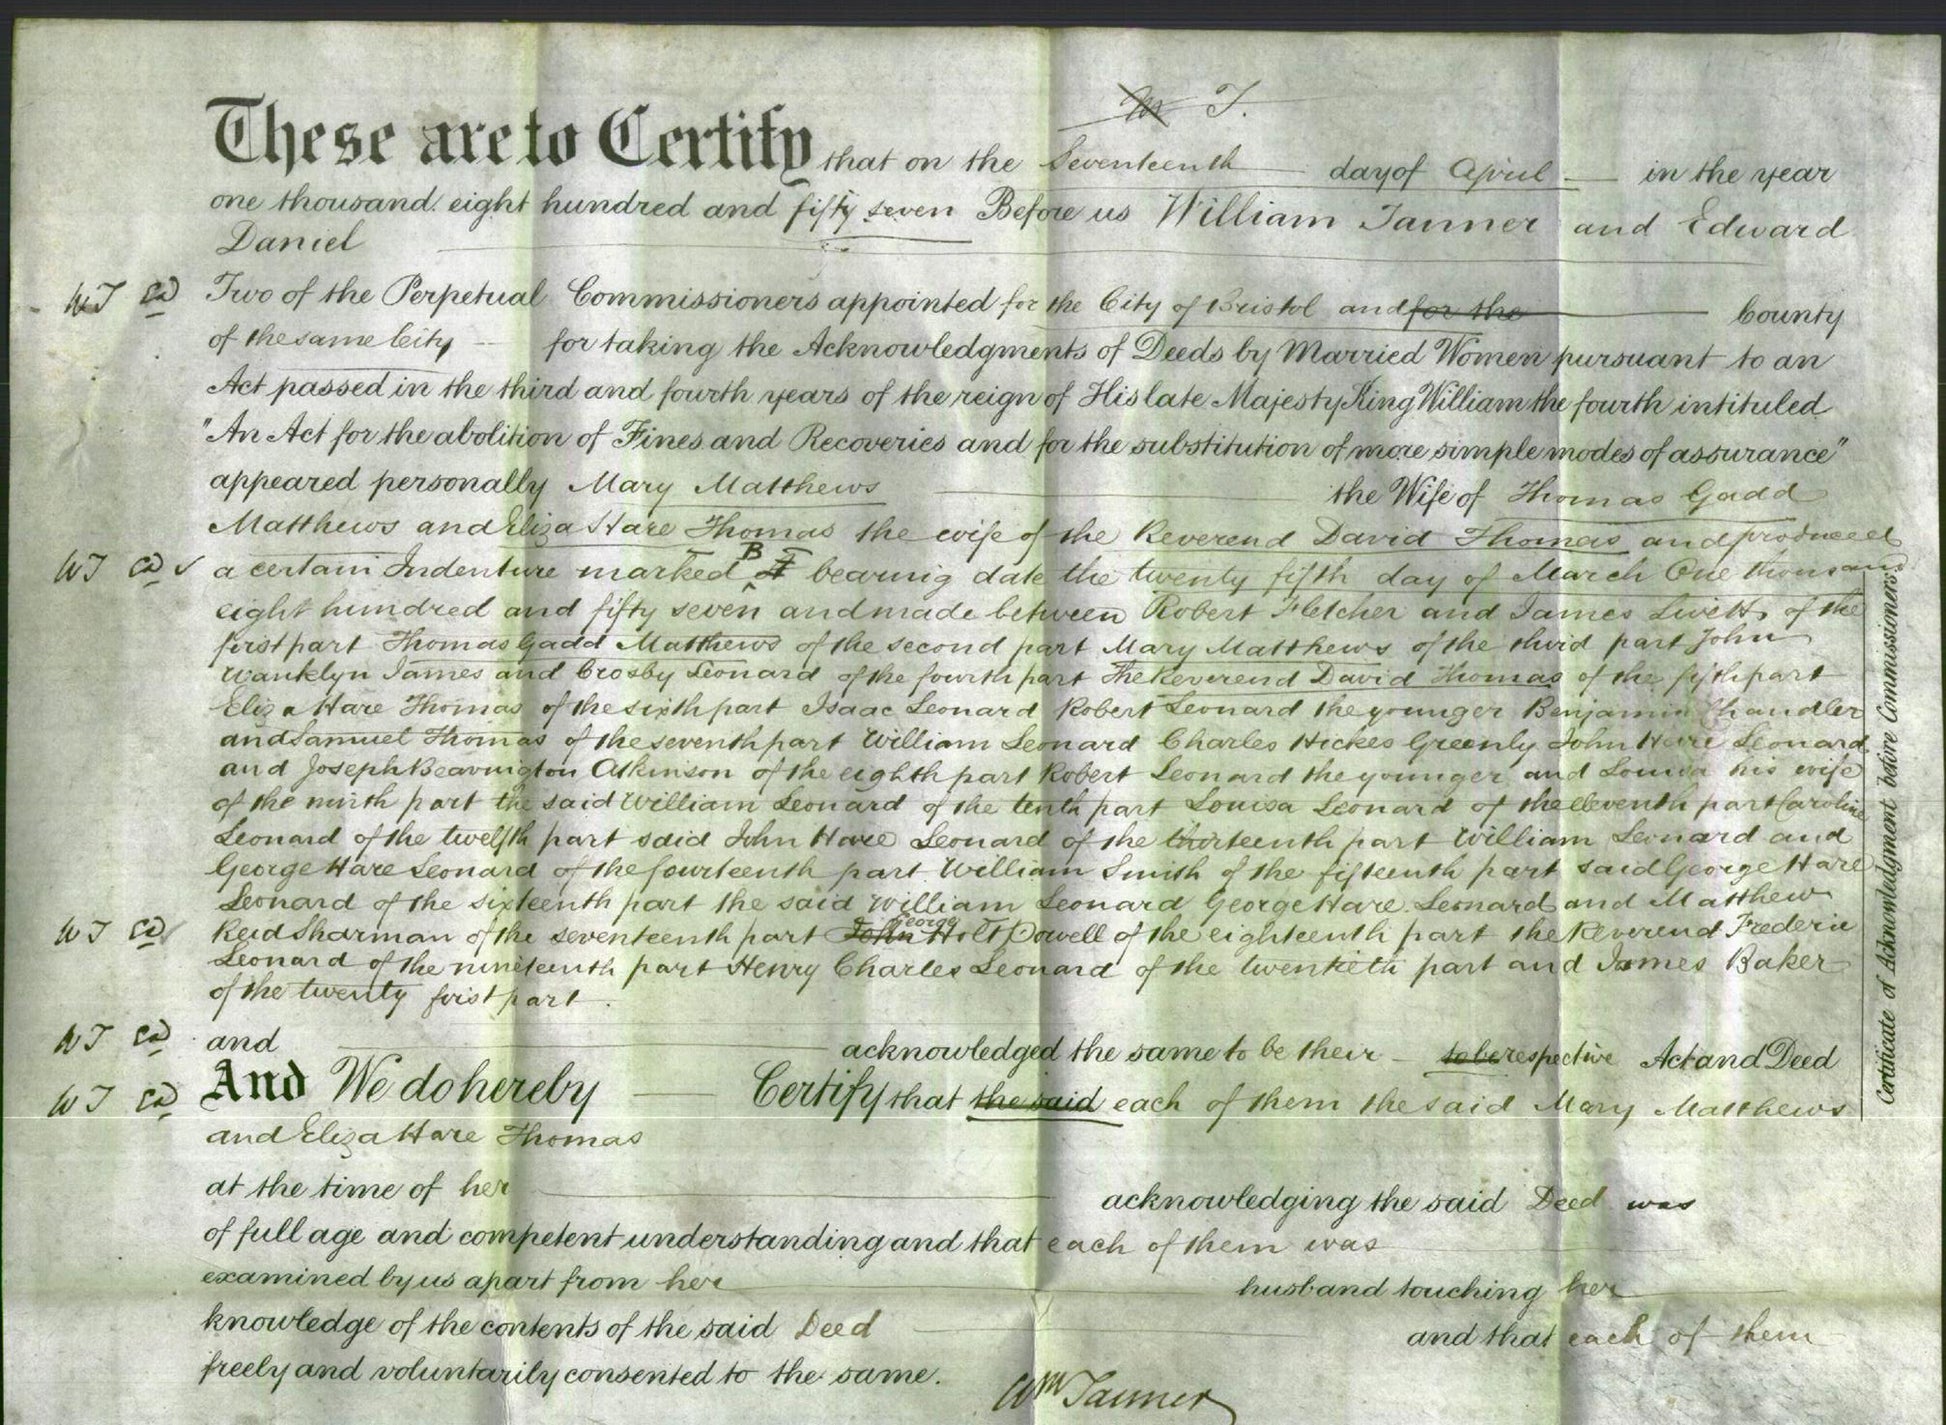 M T.
These are to Certify that on the Seventeenth day of April in the year
one thousand eight hundred and fifty seven Before us William Tanner and Edward
Daniel
WT ED Two of the Perpetual Commissioners appointed for the City of Bristol and for the County
of the same City for taking the Acknowledgments of Deeds by Married Women pursuant to an
Act passed in the third and fourth years of the reign of His late Majesty King William the fourth intituled
"An Act for the abolition of Fines and Recoveries and for the substitution of more simple modes of assurance"
appeared personally Mary Matthews the Wife of Thomas Gadd
Matthews and Eliza Hare Thomas the wife of the Reverend David Thomas and produced
WT ED a certain Indenture marked B bearing date the twenty fifth day of March One thousand
eight hundred and fifty seven and made between Robert Fletcher and James Livett of the
first part Thomas Gadd Matthews of the second part Mary Matthews of the third part John
Wanklyn James and Crosby Leonard of the fourth part The Reverend David Thomas of the fifth part
Eliza Hare Thomas of the sixth part Isaac Leonard Robert Leonard the younger Benjamin Chandler
and Samuel Thomas of the seventh part William Leonard Charles Hickes Greenly John Hare Leonard
and Joseph Beavington Atkinson of the eighth part Robert Leonard the younger and Louisa his wife
of the ninth part the said William Leonard of the tenth part Louisa Leonard of the eleventh part Caroline
Leonard of the twelfth part said John Hare Leonard of the thirteenth part William Leonard and
George Hare Leonard of the fourteenth part William Smith of the fifteenth part said George Hare
Leonard of the sixteenth part the said William Leonard George Hare Leonard and Matthew
WT ED Reid Sharman of the seventeenth part John George Holt Powell of the eighteenth part the Reverend Frederic
Leonard of the nineteenth part Henry Charles Leonard of the twentieth part and James Baker
of the twenty first part.
WT ED and acknowledged the same to be their to be respective Act and Deed
WT ED And We do hereby Certify that the said each of them the said Mary Matthews
and Eliza Hare Thomas
at the time of her acknowledging the said Deed was
of full age and competent understanding and that each of them was
examined by us apart from her husband touching her
knowledge of the contents of the said Deed and that each of them
freely and voluntarily consented to the same.
Wm Tanner
Certificate of Acknowledgment before Commissioners.